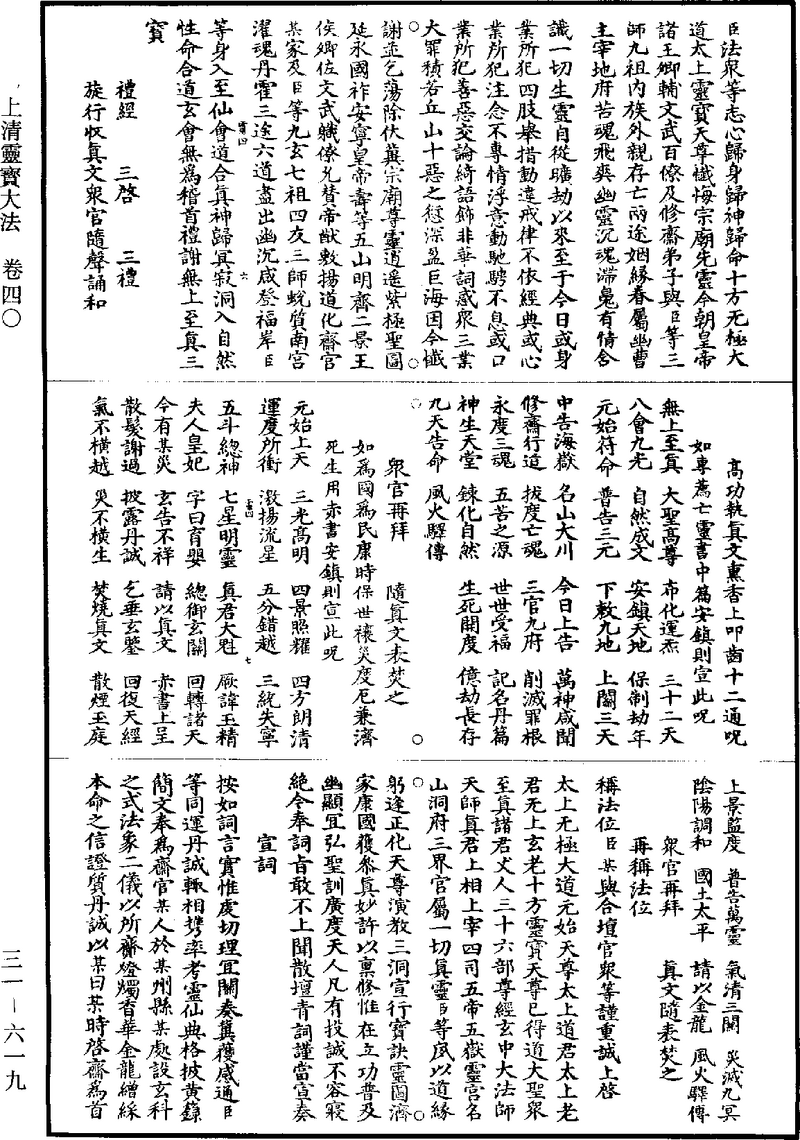 臣法衆等志心歸身歸神歸命十方无極大
道太上靈寶天尊懺悔宗廟先靈今朝皇帝
諸王卿輔文武百僚及修齋弟子與臣等三
師九祖内族外親存亡兩途姻緣眷屬幽曹
主宰地府苦魂飛爽幽靈沉魂滯魄有情含
識一切生靈自從曠劫以來至于今日或身
業所犯四肢舉措動違戒律不依經典或心
業所犯注念不專情浮意動馳騁不息或口
業所犯善惡交論綺語飾非華詞惑衆三業
大罪積若丘山十惡之愆深盈巨海因今懺
謝並乞蕩除伏冀宗廟尊靈逍遥紫極聖圖
延永國祚安寧皇帝壽等五山明齊二景王
侯卿佐文武軄僚允賛帝猷敷揚道化齋官
某家及臣等九玄七祖四友三師蛻質南宮
濯魂丹霍三途六道盡出幽沉咸登福岸臣
等身入至仙會道合真神歸冥寂洞入自然
性命合道玄會無爲稽首禮謝無上至真三
寳
禮經 三啓 三禮
旋行收真文衆官隨聲誦和
高功執真文熏香上叩齒十二通呪
如專薦亡靈書中篇安鎮則宣此呪
無上至真 大聖髙尊 布化運炁 三十二天
八會九光 自然成文 安鎮天地 保制劫年
元始符命 普告三元 下敕九地 上闗三天
中告海嶽 名山大川 今日上告 萬神咸聞
修齋行道 拔度亡魂 三官九府 削滅罪根
永度三魂 五苦之源 世世受福 記名丹篇
神生天堂 鍊化自然 生死開度 億劫長存
九天告命 風火驛傳
衆官再拜 隨真文表焚之
如爲國爲民康時保世禳災度厄兼濟
死生用赤書安鎮則宣此呪
元始上天 三光髙明 四景照耀 四方朗清
運度所衝 激揚流星 五分錯越 三統失寧
五斗總神 七星明靈 真君大魁 厥諱玉精
夫人皇妃 字曰育嬰 總御玄關 回轉諸天
今有某災 玄告不祥 請以真文 赤書上呈
散髮謝過 披露丹誠 乞垂玄鑒 回復天經
氣不橫越 災不橫生 焚燒真文 散煙玉庭
上景監度 普告萬靈 氣清三關 災滅九冥
陰陽調和 國土太平 請以金龍 風火驛傳
衆官再拜 真文隨表焚之
再稱法位
稱法位臣某與合壇官衆等謹重誠上啓
太上无極大道元始天尊太上道君太上老
君无上玄老十方靈寶天尊已得道大聖衆
至真諸君丈人三十六部尊經玄中大法師
天師真君上相上宰四司五帝五嶽靈宮名
山洞府三界官屬一切真靈臣等夙以道緣
躬逢正化天尊演教三洞宣行寳訣靈圖濟
家康國獲叅真妙許以稟修惟在立功普及
幽顯冝弘聖訓廣度天人凡有投誠不容寢
絶今奉詞旨敢不上聞散壇青詞謹當宣奏
宣詞
按如詞言實惟虔切理冝關奏冀獲感通臣
等同運丹誠輙相携率考靈仙典格披黄籙
簡文奉爲齋官某人於某州縣某處設玄科
之式法象二儀以所齋燈燭香華金龍繒綵
本命之信證質丹誠以某日某時啓齋爲首
上清靈寳大法 卷四〇
三一—六一九